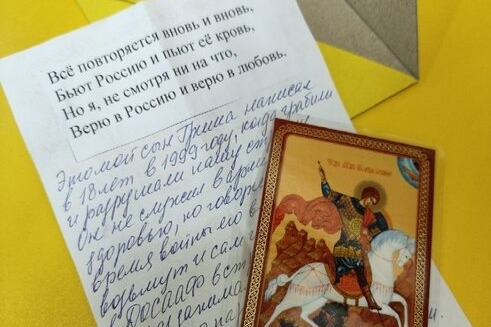 Всё повторяется вновь и вновь,
Бьют Россию и пьют её кровь,
Но я, не смотря ни на что,
Верю в Россию и верю в любовь.
Это мой сын Гриша написал
в 18 лет в 1999 году, когда грабили
и разрушали нашу
Он не служил в арми
здоровью, но говори
время войны его в
возьмут и сам
ДОСААФ вст